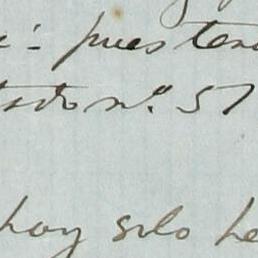 pues ten
nº 57
hoy solo he